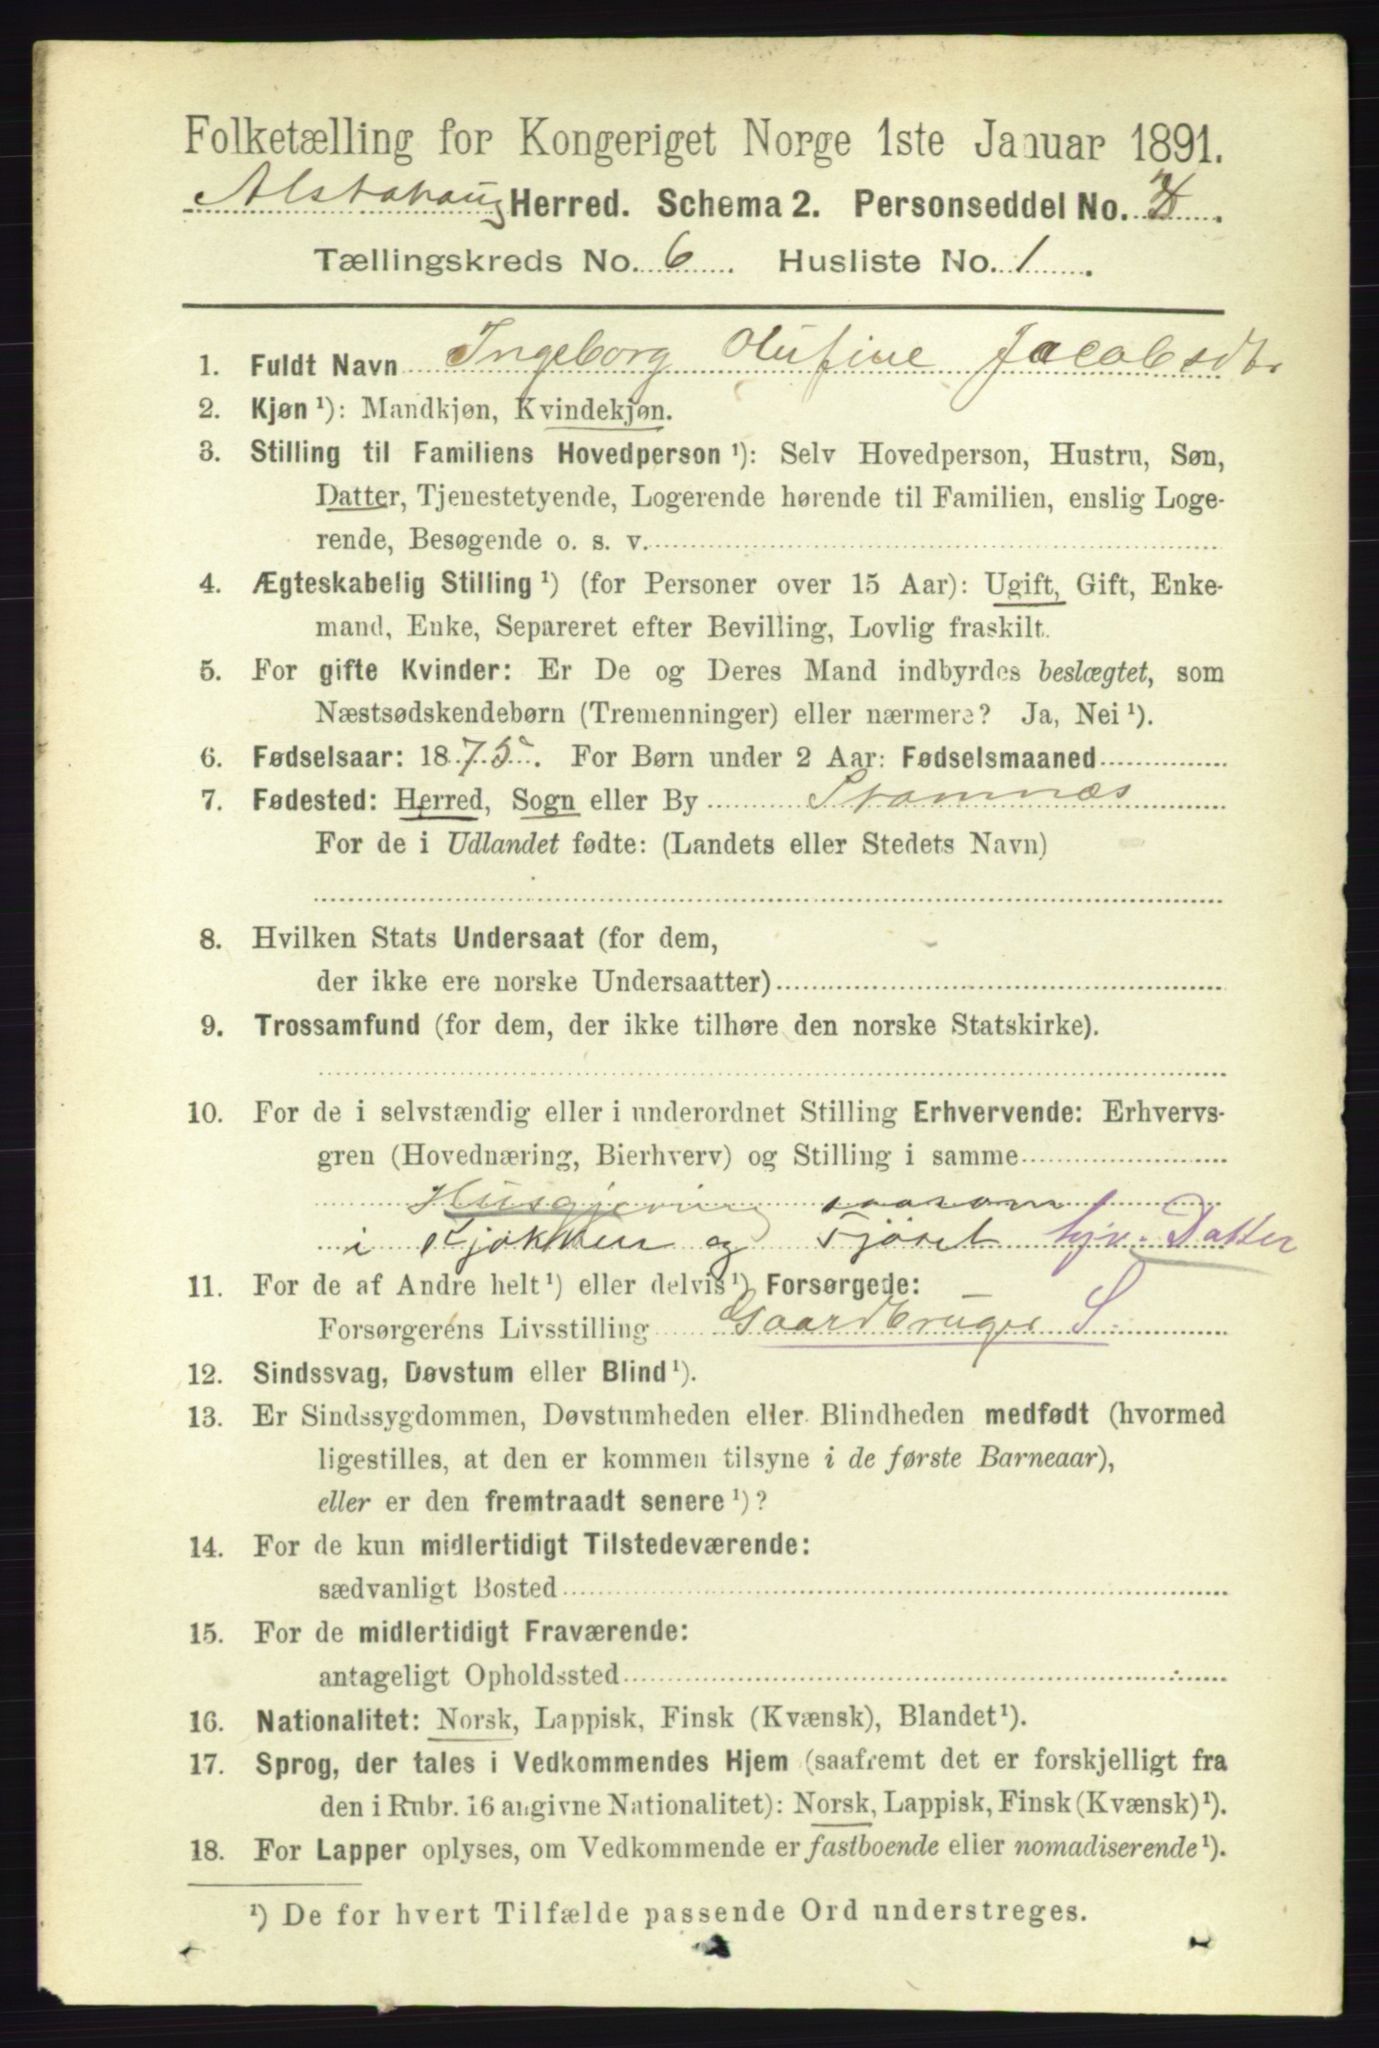 Folketælling for Kongeriget Norge 1ste Januar 1891.
Alstahaug Herred. Schema 2. Personseddel No.
Tællingskreds No. 6 Husliste No. 1
1. Fuldt Navn Ingeborg Olufine Jacobsdtr
2. Kjøn¹): Mandkjøn, Kvindekjøn.
3. Stilling til Familiens Hovedperson¹): Selv Hovedperson, Hustru, Søn,
Datter, Tjenestetyende, Logerende hørende til Familien, enslig Loge-
rende, Besøgende o. s. v.
4. Ægteskabelig Stilling¹) (for Personer over 15 Aar): Ugift, Gift, Enke-
mand, Enke, Separeret efter Bevilling, Lovlig fraskilt.
5. For gifte Kvinder: Er De og Deres Mand indbyrdes beslægtet, som
Næstsødskendebørn (Tremenninger) eller nærmere? Ja, Nei¹).
6. Fødselsaar: 1875. For Børn under 2 Aar: Fødselsmaaned
7. Fødested: Herred, Sogn eller By Stamnæs
For de i Udlandet fødte: (Landets eller Stedets Navn)
8. Hvilken Stats Undersaat (for dem,
der ikke ere norske Undersaatter)
9. Trossamfund (for dem, der ikke tilhøre den norske Statskirke).
10. For de i selvstændig eller i underordnet Stilling Erhvervende: Erhvervs-
gren (Hovednæring, Bierhverv) og Stilling i samme
Husgjerning saasom
i Kjøkken og Fjøset hjv. Datter
11. For de af Andre helt¹) eller delvis¹) Forsørgede:
Forsørgerens Livsstilling Gaardbruger S
12. Sindssvag, Døvstum eller Blind¹).
13. Er Sindssygdommen, Døvstumheden eller Blindheden medfødt (hvormed
ligestilles, at den er kommen tilsyne i de første Barneaar),
eller er den fremtraadt senere¹)?
14. For de kun midlertidigt Tilstedeværende:
sædvanligt Bosted
15. For de midlertidigt Fraværende:
antageligt Opholdssted
16. Nationalitet: Norsk, Lappisk, Finsk (Kvænsk), Blandet¹).
17. Sprog, der tales i Vedkommendes Hjem (saafremt det er forskjelligt fra
den i Rubr. 16 angivne Nationalitet): Norsk, Lappisk, Finsk (Kvænsk)¹).
18. For Lapper oplyses, om Vedkommende er fastboende eller nomadiserende¹).
¹) De for hvert Tilfælde passende Ord understreges.